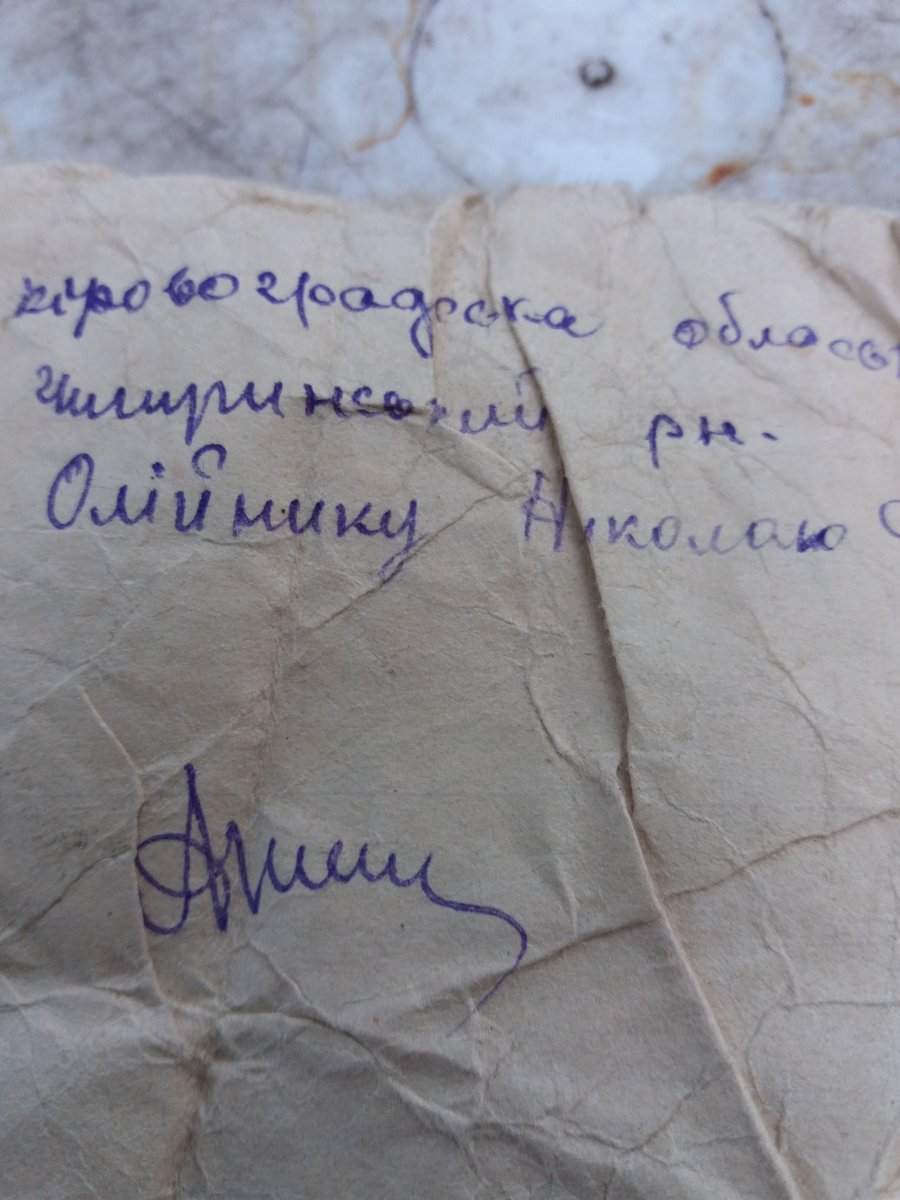 кіровоградска область
чигиринський рн.
Олійнику Николаю